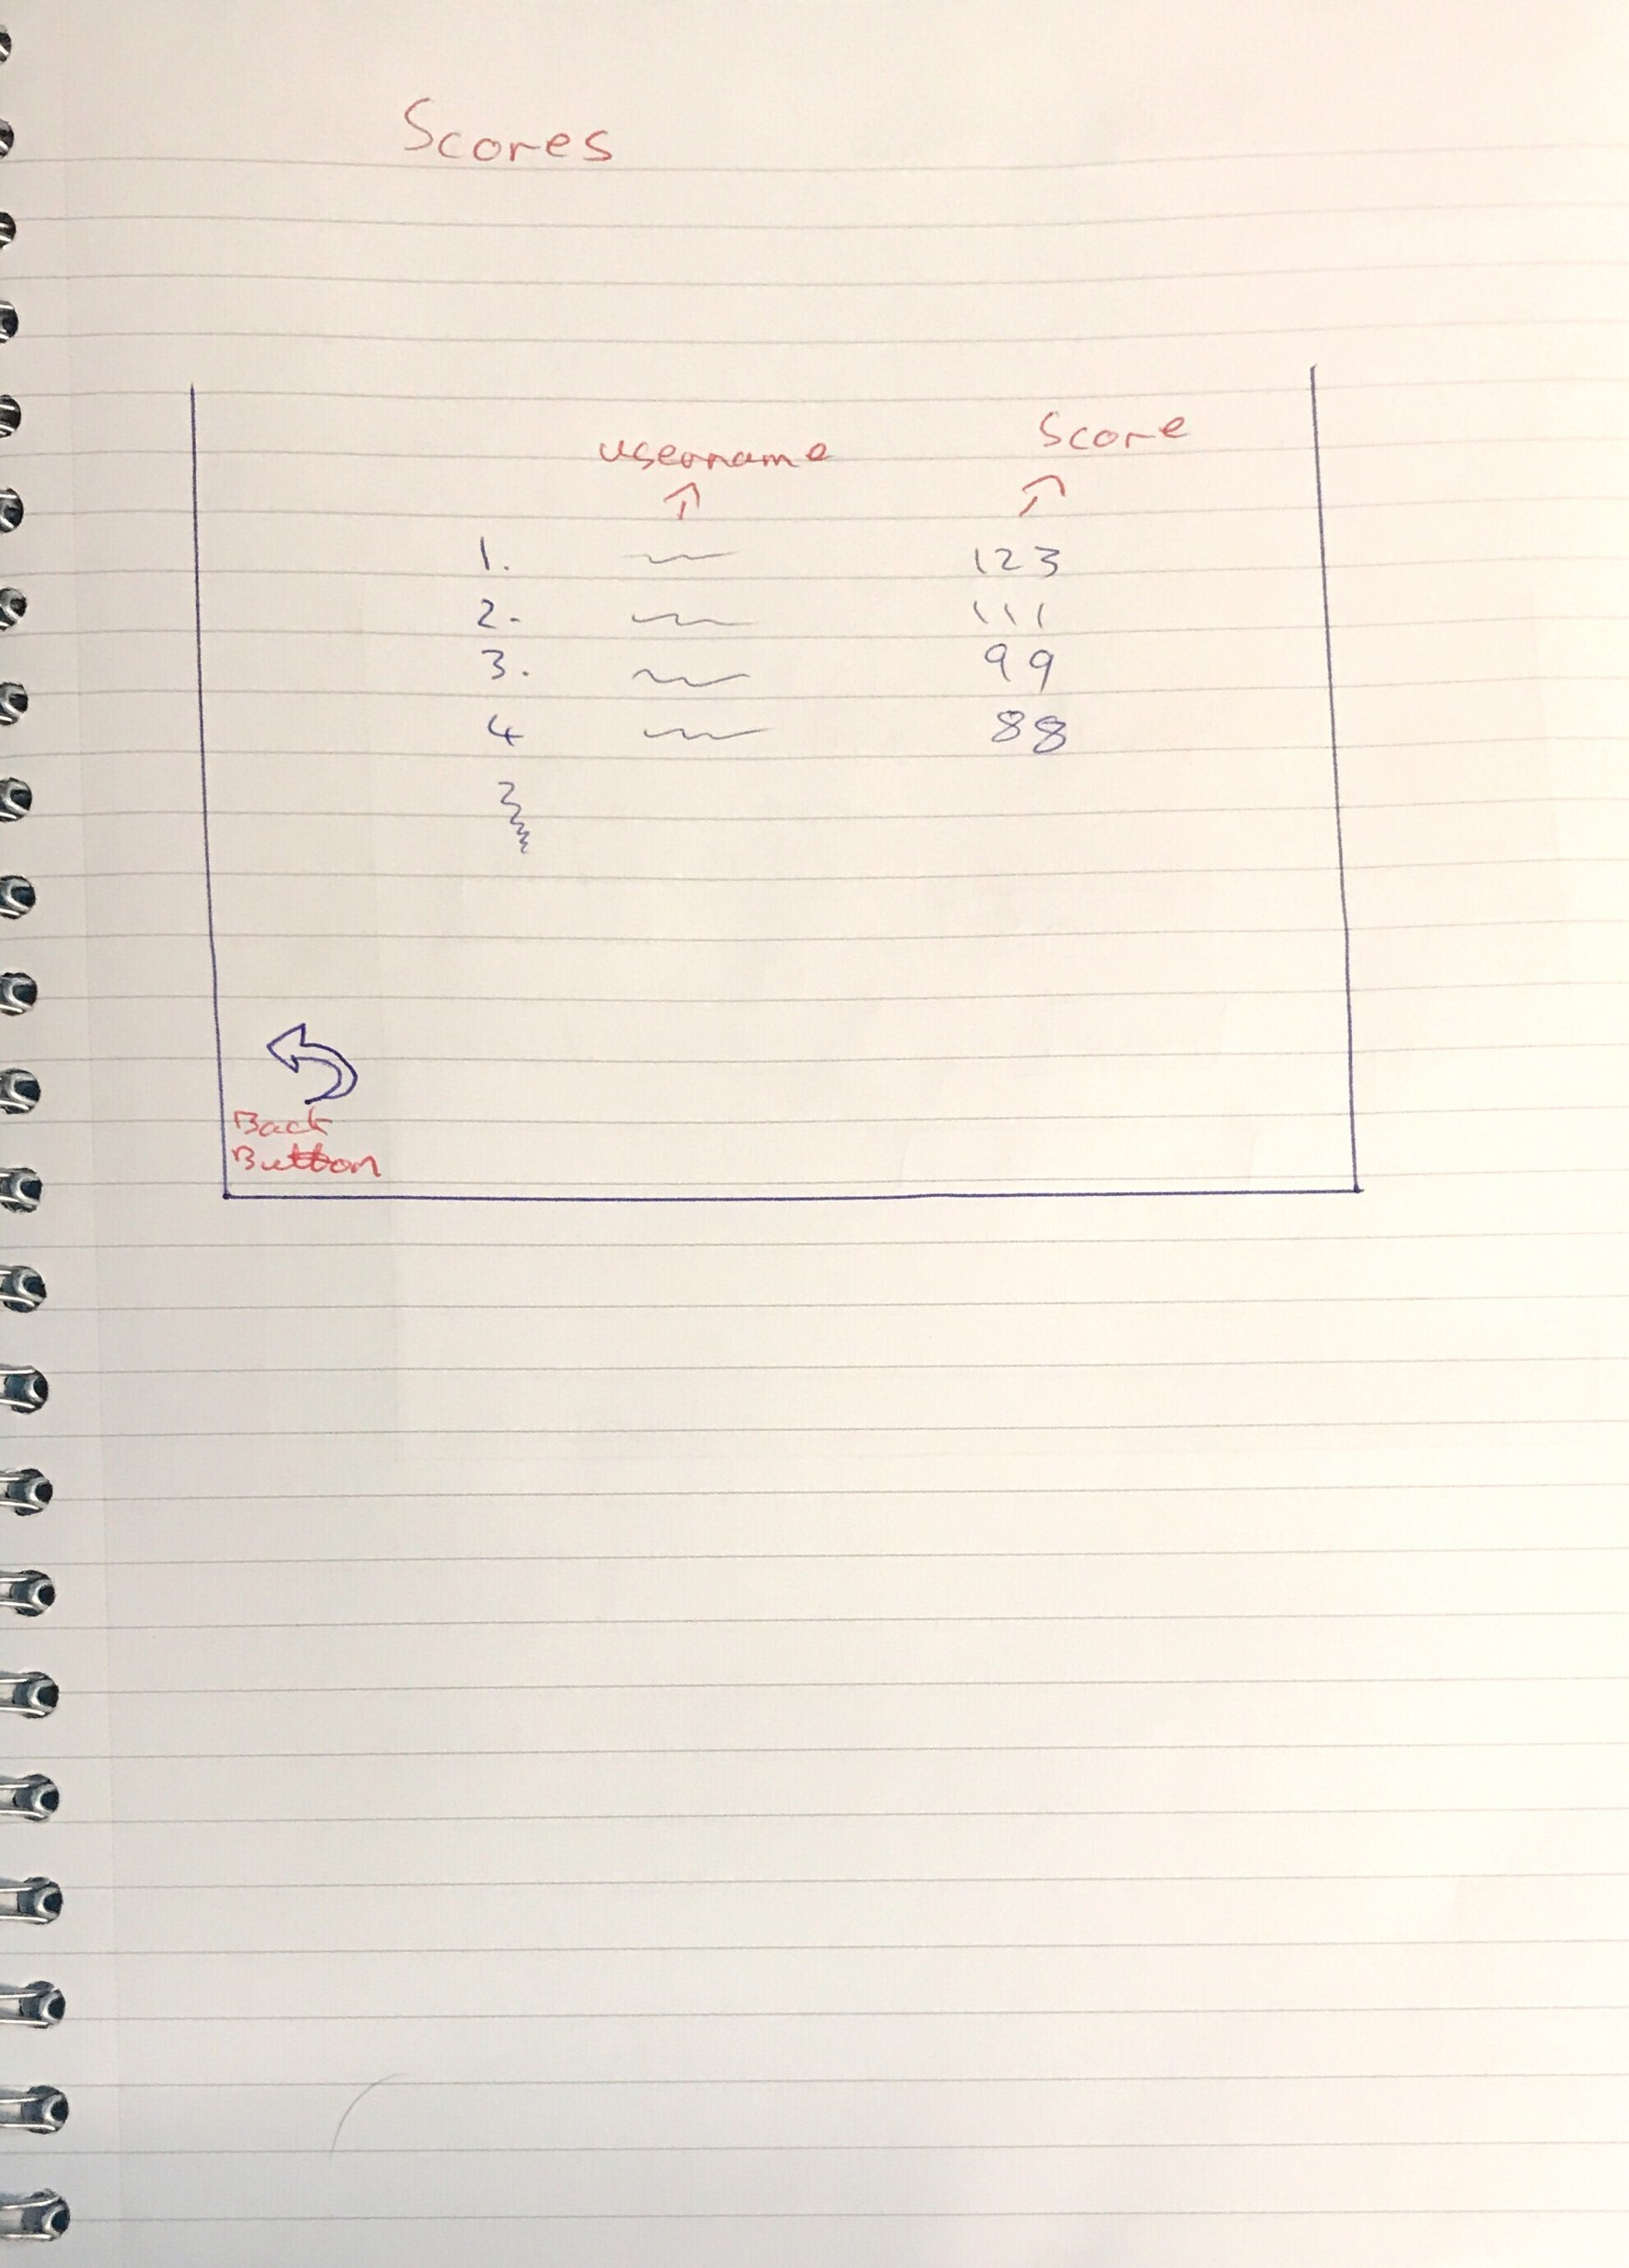 Scores
username Score
1. 123
2. 111
3. 99
4 88
Back
Button